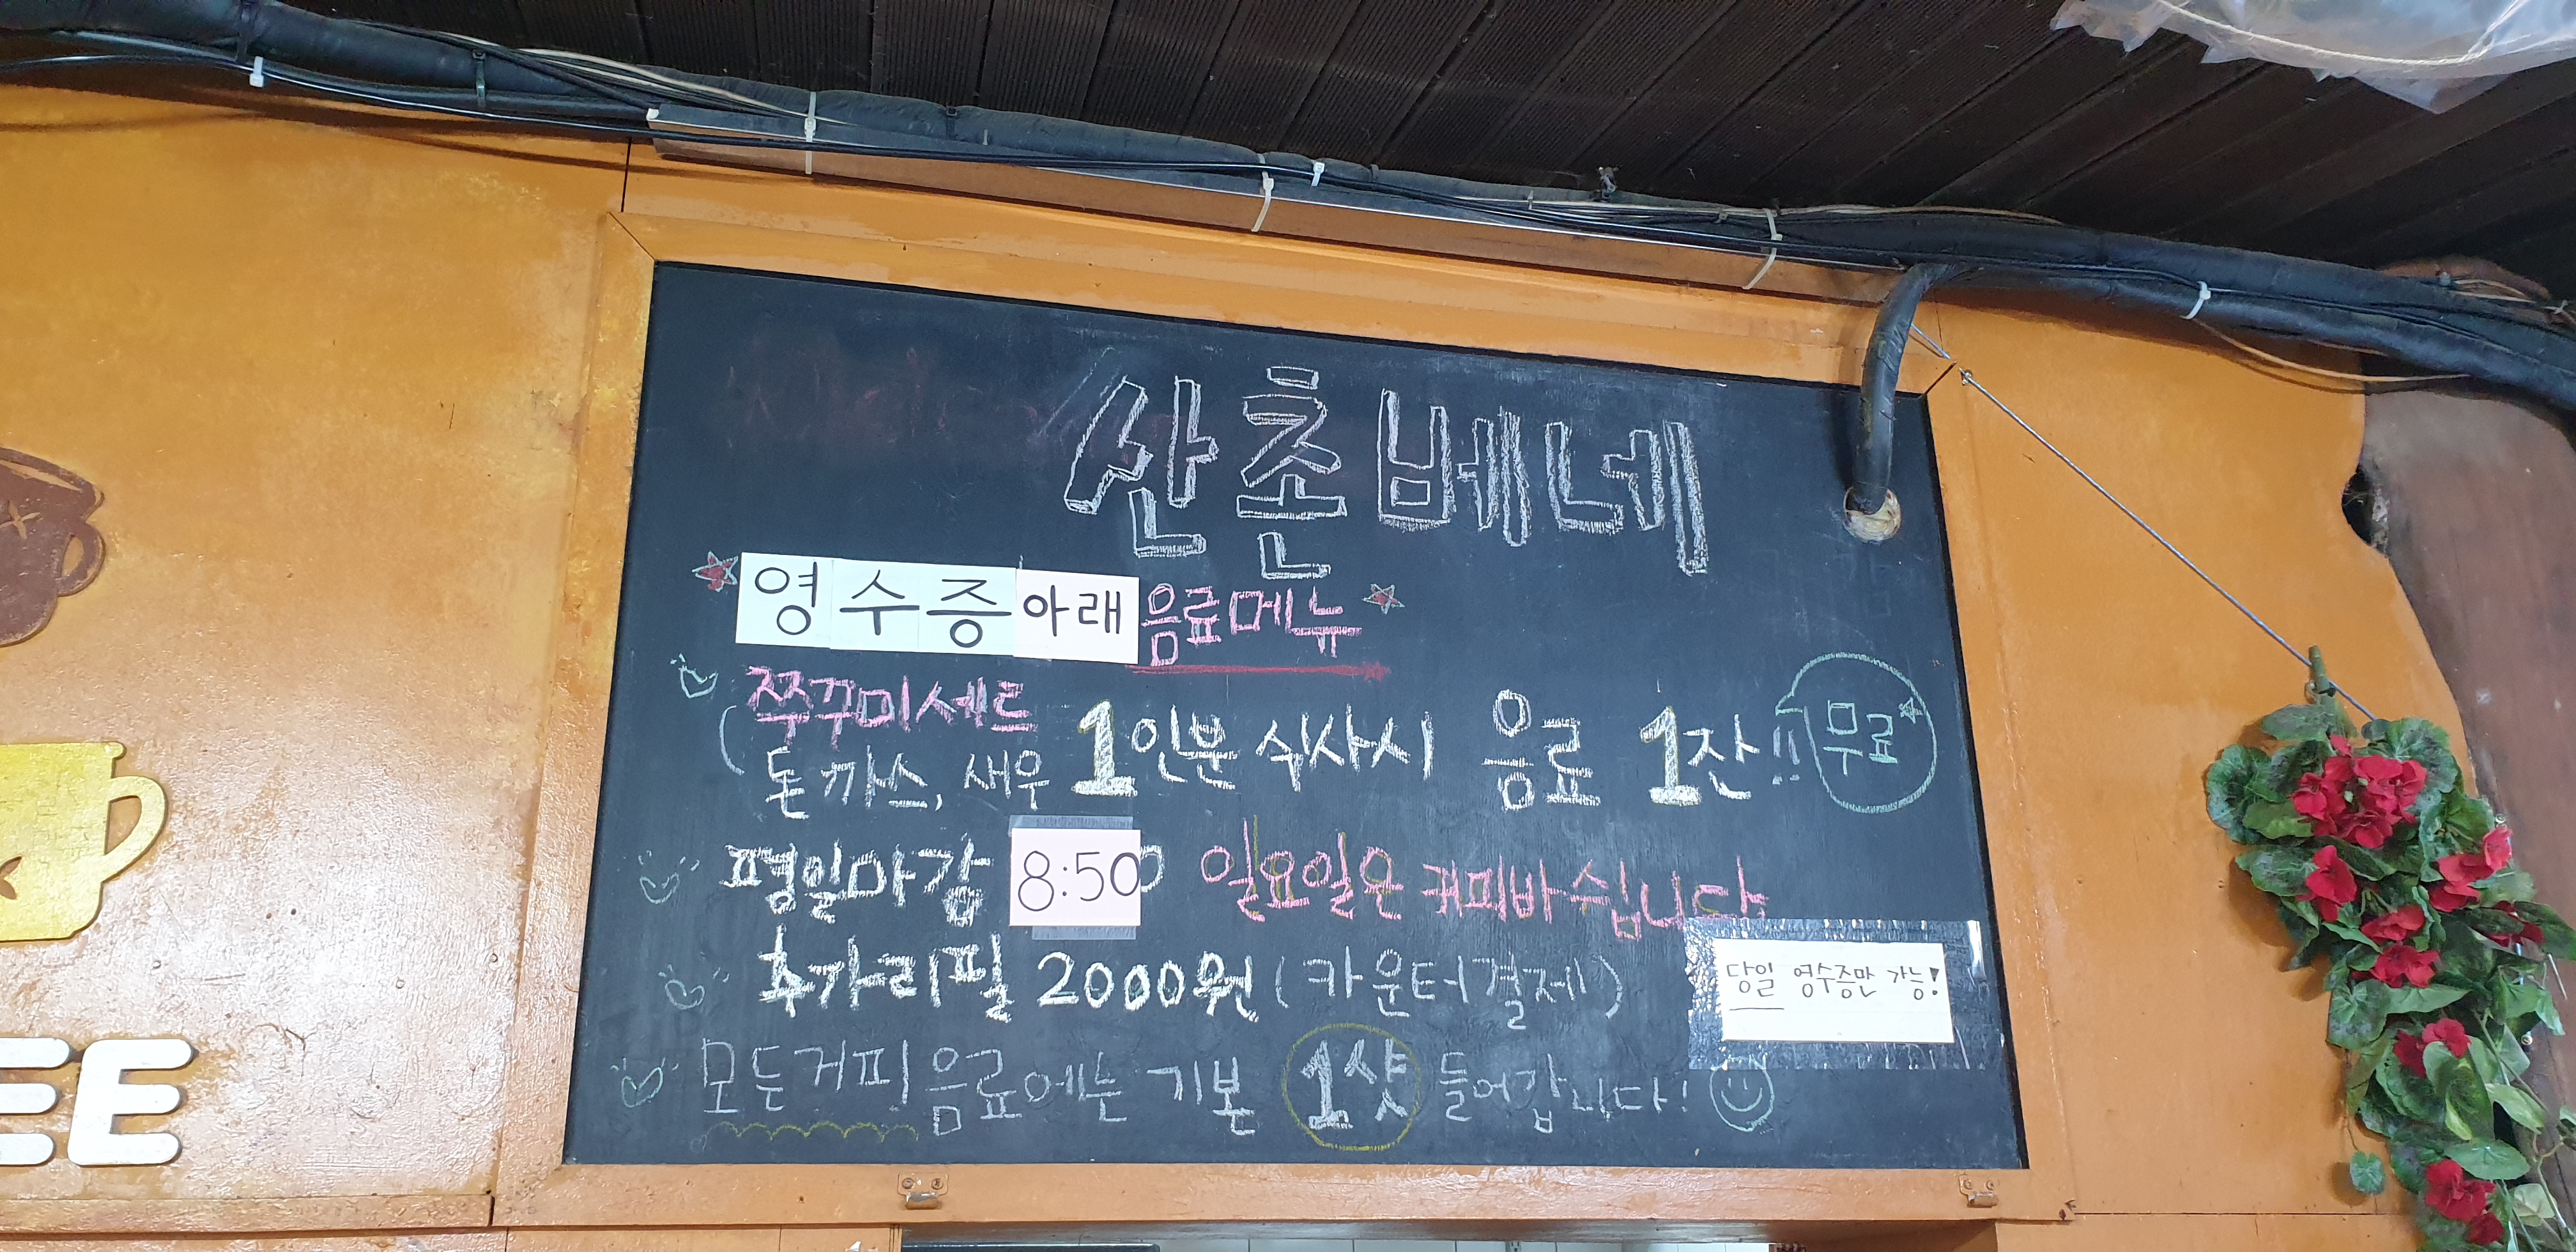 산촌베네
영수증아래 음료메뉴
쭈꾸미세트
(돈까스, 새우 1인분 식사시 음료 1잔!! 무료
평일마감 8:50 일요일은 커피바 쉽니다
추가리필 2000원 (카운터결제)
당일 영수증만 가능!
모든커피 음료에는 기본 1샷 들어갑니다!
EE